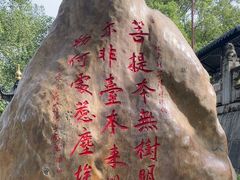 菩提本無樹明
亦非臺本來
何處惹塵埃